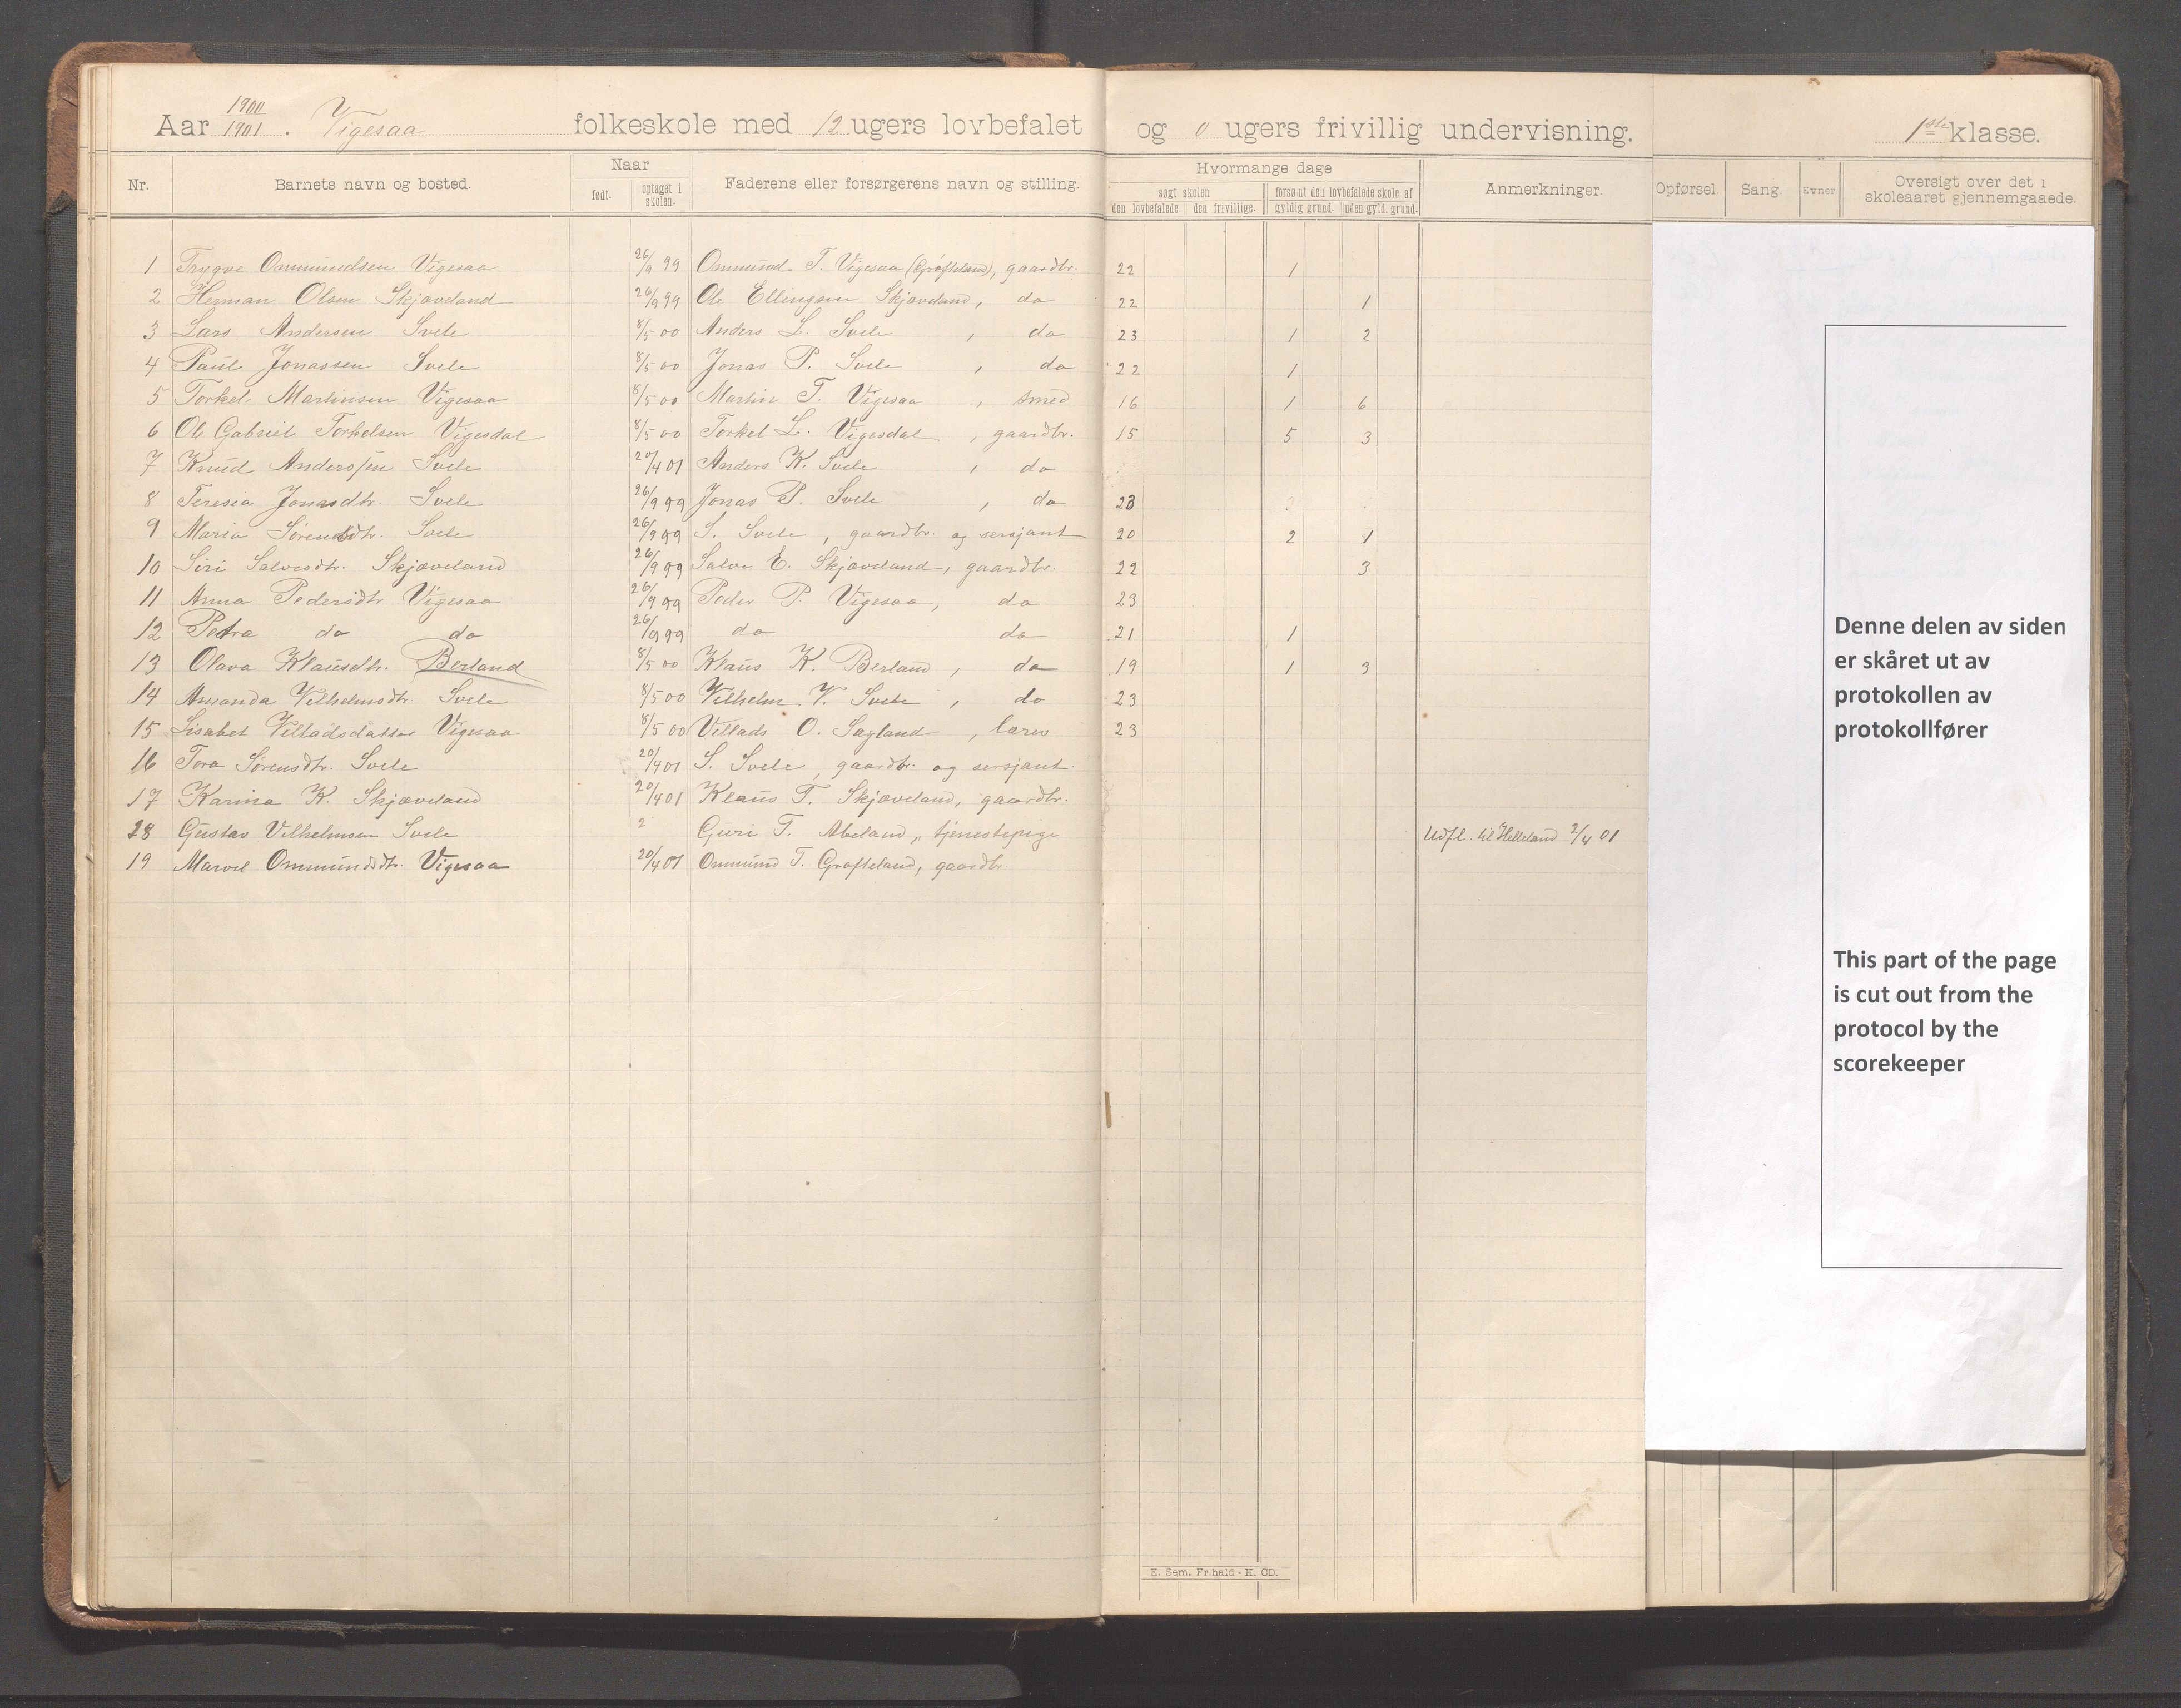 Aar 1900/1901. Vigesaa folkeskole med 12 ugers lovbefalet og 0 ugers frivillig undervisning. 1ste klasse.
Nr. Barnets navn og bosted. Naar født. optaget i skolen. Faderens eller forsørgerens navn og stilling. Hvormange dage søgt skolen den lovbefalede den frivillige. forsømt den lovbefalede skole af gyldig grund. uden gyld. grund. Anmerkninger Opførsel. Sang. Evner Oversigt over det i skoleaaret gjennemgaaede.
1 Trygve Ommundsen Vigesaa 26/9 99 Ommund T. Vigesaa (Grøfteland), gaardbr. 22 1
2 Herman Olsen Skjæveland 26/9 99 Ole Ellingsen Skjæveland, do 22 1
3 Lars Andersen Svele 8/5 00 Anders L. Svele, do 23 1 2
4 Paul Jonassen Svele 8/5 00 Jonas P. Svele, do 22 1
5 Torkel Martinsen Vigesaa 8/5 00 Martin T. Vigesaa, smed 16 1 6
6 Ole Gabriel Torkelsen Vigesdal 8/5 00 Torkel L. Vigesdal, gaardbr. 15 5 3
7 Knud Anderssen Svele 20/4 01 Anders K. Svele, do
8 Teresia Jonasdtr. Svele 26/9 99 Jonas P. Svele, do 23
9 Maria Sørensdtr. Svele 26/9 99 S. Svele, gaardbr. og sersjant 20 2 1
10 Siri Salvesdtr. Skjæveland 26/9 99 Salve E. Skjæveland, gaardbr. 22 3
11 Anna Pedersdtr Vigesaa 26/9 99 Peder P. Vigesaa, do 23
12 Petra do do 26/9 99 do do 21 1
13 Olava Klausdtr. Berland 8/5 00 Klaus K. Berland, do 19 1 3
14 Amanda Vilhelmsdtr. Svele 8/5 00 Vilhelm V. Svele, do 23
15 Lisabet Villadsdatter Vigesaa 8/5 00 Villads O. Sagland, lærer 23
16 Tora Sørensdtr. Svele 20/4 01 S. Svele, gaardbr. og sersjant.
17 Karina K. Skjæveland 20/4 01 Klaus T. Skjæveland, gaardbr.
18 Gustav Vilhelmsen Svele 2 Guri T. Abeland, tjenestepige Udfl. til Helleland 2/4 01
19 Marvel Ommundsdtr. Vigesaa 20/4 01 Ommund T. Grøfteland, gaardbr.
Denne delen av siden
er skåret ut av
protokollen av
protokollfører
This part of the page
is cut out from the
protocol by the
scorekeeper
E. Sem. Fr.hald - H. CD.